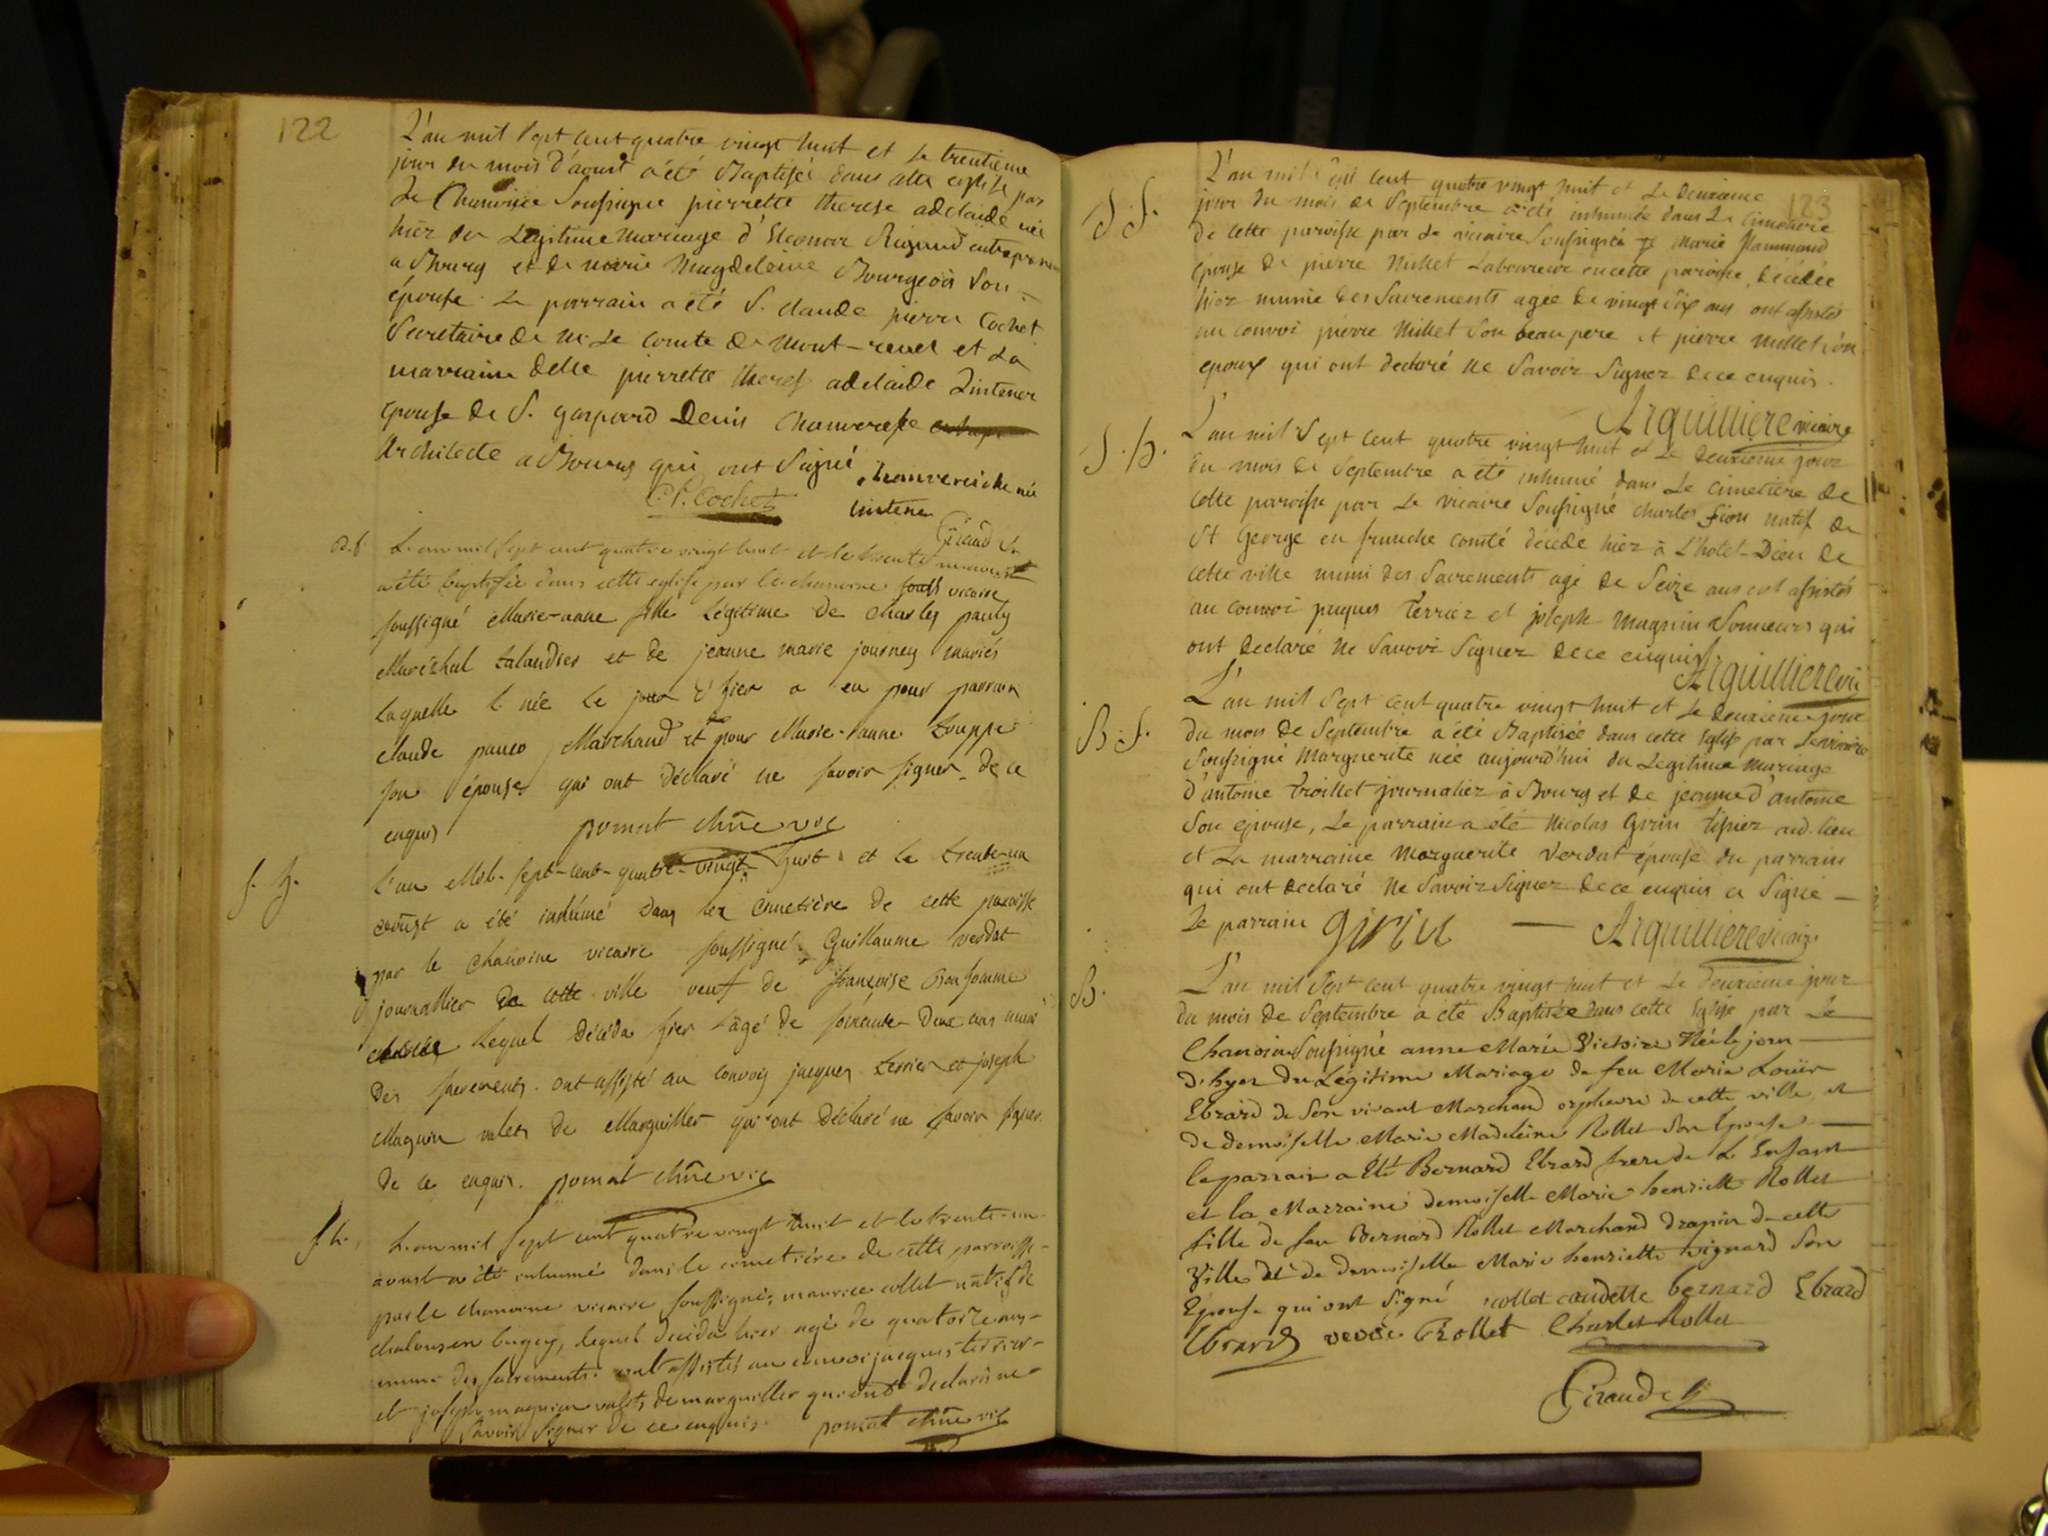 122
L'an mil sept cent quatre vingt huit et le trentieme
jour du mois d'aoust a été Baptisée dans cette eglise par
Le Chanoine Soussigné pierrette therese adelaide née
hier du Legitime mariage d'Eleonor Rigaud
a Bourg et de marie Magdeleine Bourgeois Son
épouse. Le parrain a été S. claude pierre Cochet
Secretaire de Mr Le comte de Mont-revel et La
marraine delle pierrette therese adelaide Lintener
épouse de S. gaspard Denis Chauvereche
Architecte a Bourg qui ont Signé chauvereiche née
C.P. Cochet lintene
Giraud
B.f L'an mil sept cent quatre vingt huit et le trente aoust
a été baptisée dans cette eglise par le chanoine vicaire
soussigné Marie-anne fille Légitime de Charles pauly
Maréchal talandier et de jeanne marie journey mariés
laquelle née le jour d'hier a eu pour parrain
claude pauco Marchand et pour Marie-anne Louppe
son épouse qui ont déclaré ne savoir signer de ce
enquis pomat chne vic
f. h. L'an Mil-sept-cent-quatre-vingt-huit et le trente-un
aoust a été inhumé dans le cimetière de cette paroisse
par le chanoine vicaire soussigné, Guillaume verdat
journallier de cette ville veuf de françoise Bonhomme
lequel décéda hier âgé de soixante-deux ans muni
des sacrements. ont assisté au convoy jacques terrier et joseph
Magnin valets de Marguiller qui ont déclaré ne savoir signer
de ce enquis. pomat chne vic
f. h. L'an mil sept cent quatre vingt huit et le trente-un
aoust a été inhumé dans le cimetière de cette parroisse
par le chanoine vicaire soussigné, maurice collet natif de
en bugey, lequel décéda hier agé de quatorze ans
muni des sacrements. ont assistés au convoi jacques terrier
et joseph magnin valets de marguiller qui ont declaré ne
savoir signer de ce enquis. pomat chne vic
123
S f. L'an mil sept cent quatre vingt huit et le deuxieme
jour du mois de Septembre a été inhumée dans Le Cimetiere
de cette paroisse par Le vicaire Soussigné Marie
épouse de pierre Millet Laboureur en cette paroisse, Décédée
hier munie des Sacrements agée de vingt Six ans ont assistés
au convoi pierre Millet Son beau pere et pierre Millet Son
epoux qui ont declaré ne Savoir Signer de ce enquis.
Arquilliere vicaire
S. h. L'an mil Sept cent quatre vingt huit et Le deuxieme jour
du mois de Septembre a été inhumé dans Le cimetiere de
cette paroisse par Le vicaire Soussigné charles Sion natif de
St George en franche comté décédé hier à L'hotel-Dieu de
cette ville muni des Sacrements agé de Seize ans ont assistés
au convoi jaques Terrier et joseph Magnin Sonneurs qui
ont declaré ne Savoir Signer de ce enquis
Arquilliere vic
B. f. L'an mil Sept cent quatre vingt huit et Le deuxieme jour
du mois de Septembre a été Baptisée dans cette Eglise par Le vicaire
Soussigné Marguerite née aujourd'hui du Legitime Mariage
d'antoine Troillet journalier à Bourg et de jeanne d'antoine
Son epouse, Le parrain a été Nicolas Gvrin tissier aud. lieu
et La marraine Marguerite Verdat épouse du parrain
qui ont declaré ne Savoir Signer de ce enquis a Signé
Le parrain — Arquilliere vicaire
B. L'an mil Sept cent quatre vingt huit et Le deuxieme jour
du mois de Septembre a été Baptisée dans cette Eglise par Le
Chanoine Soussigné anne Marie Victoire Née le jour
d'hyer du Légitime Mariage de feu Marie Louis
Ebrard de Son vivant Marchand orphevre de cette ville et
de demoiselle Marie Madeleine Rollet Son Epouse
le parrain a Eté Bernard Ebrard frere de L'Enfant
et la Marraine demoiselle Marie henriette Rollet
fille de feu Bernard Rollet Marchand drapier de cette
Ville Et de demoiselle Marie henriette vignard Son
Epouse qui ont Signé rollet caudette bernard Ebrard
Ebrard veuve Rollet Charles Rollet
Giraud